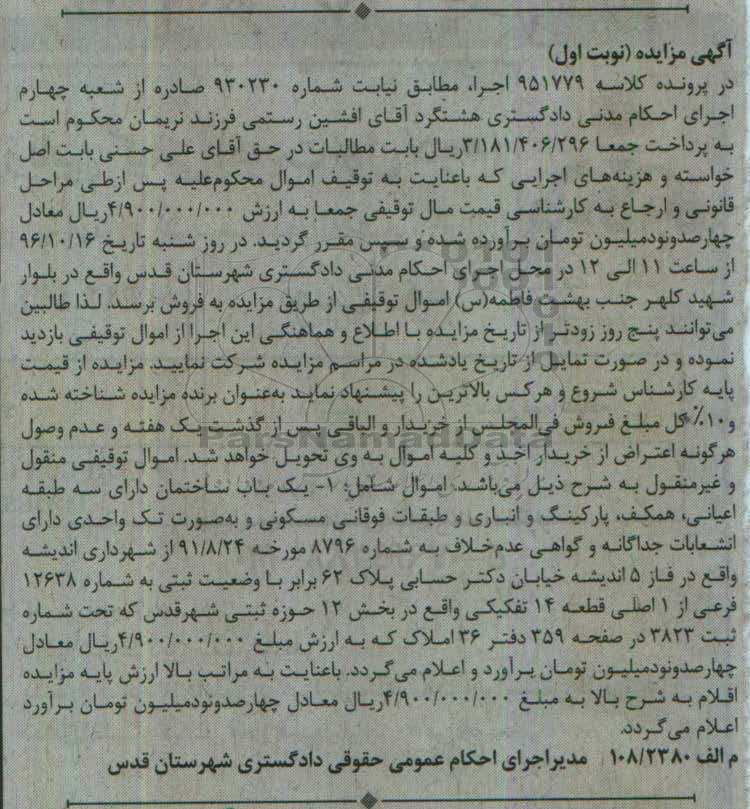 آگهی مزایده (نوبت اول)
در پرونده کلاسه ۹۵۱۷۷۹ اجرا، مطابق نیابت شماره ۹۳۰۲۳۰ صادره از شعبه چهارم
اجرای احکام مدنی دادگستری هشتگرد آقای افشین رستمی فرزند نریمان محکوم است
به پرداخت جمعا ۳/۱۸۱/۴۰۶/۲۹۶ریال بابت مطالبات در حق آقای علی حسنی بابت اصل
خواسته و هزینه‌های اجرایی که باعنایت به توقیف اموال محکوم‌علیه پس ازطی مراحل
قانونی و ارجاع به کارشناسی قیمت مال توقیفی جمعا به ارزش ۴/۹۰۰/۰۰۰/۰۰۰ریال معادل
چهارصدونودمیلیون تومان برآورده شده و سپس مقرر گردید. در روز شنبه تاریخ ۹۶/۱۰/۱۶
از ساعت ۱۱ الی ۱۲ در محل اجرای احکام مدنی دادگستری شهرستان قدس واقع در بلوار
شهید کلهر جنب بهشت فاطمه(س) اموال توقیفی از طریق مزایده به فروش برسد. لذا طالبین
می‌توانند پنج روز زودتر از تاریخ مزایده با اطلاع و هماهنگی این اجرا از اموال توقیفی بازدید
نموده و در صورت تمایل از تاریخ یادشده در مراسم مزایده شرکت نمایید. مزایده از قیمت
پایه کارشناس شروع و هرکس بالاترین را پیشنهاد نماید به‌عنوان برنده مزایده شناخته شده
و ۱۰٪ کل مبلغ فروش فی‌المجلس از خریدار و الباقی پس از گذشت یک هفته و عدم وصول
هرگونه اعتراض از خریدار اخذ و کلیه اموال به وی تحویل خواهد شد. اموال توقیفی منقول
و غیرمنقول به شرح ذیل می‌باشد. اموال شامل: ۱- یک باب ساختمان دارای سه طبقه
اعیانی، همکف، پارکینگ و انباری و طبقات فوقانی مسکونی و به‌صورت تک واحدی دارای
انشعابات جداگانه و گواهی عدم‌خلاف به شماره ۸۷۹۶ مورخه ۹۱/۸/۲۴ از شهرداری اندیشه
واقع در فاز ۵ اندیشه خیابان دکتر حسابی پلاک ۶۲ برابر با وضعیت ثبتی به شماره ۱۲۶۳۸
فرعی از ۱ اصلی قطعه ۱۴ تفکیکی واقع در بخش ۱۲ حوزه ثبتی شهرقدس که تحت شماره
ثبت ۳۸۲۳ در صفحه ۳۵۹ دفتر ۳۶ املاک که به ارزش مبلغ ۴/۹۰۰/۰۰۰/۰۰۰ریال معادل
چهارصدونودمیلیون تومان برآورد و اعلام می‌گردد. باعنایت به مراتب بالا ارزش پایه مزایده
اقلام به شرح بالا به مبلغ ۴/۹۰۰/۰۰۰/۰۰۰ریال معادل چهارصدونودمیلیون تومان برآورد
اعلام می‌گردد.
م الف ۱۰۸/۲۳۸۰ مدیراجرای احکام عمومی حقوقی دادگستری شهرستان قدس
ParsNamadData